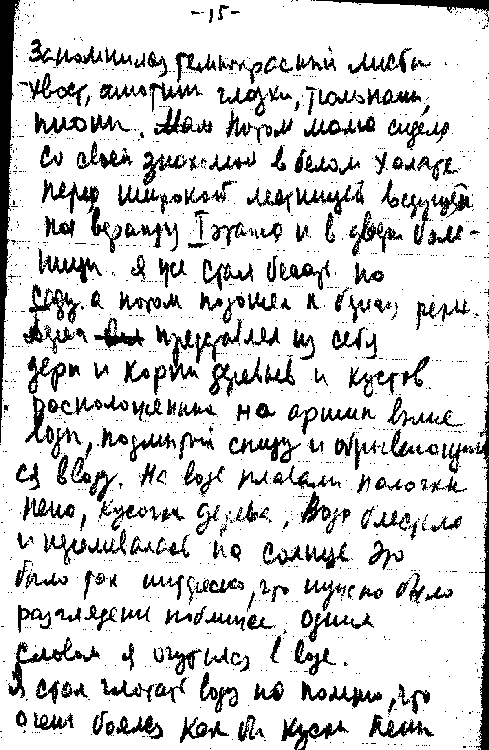 -15-
Запомнился темнокрасный листви
хвост, анютины глазки, тюльпаны,
пионы. Мы потом мама сидела
со своей знакомой в белом халате
перед широкой лестницей ведущей
на веранду I этажа и в двери боль-
ницы. Я же стал бегать по
саду а потом подошел к берегу реки.
Берег представлял из себя
дерн и корни деревьев и кустов
расположенные на аршин выше
воды, подмытый снизу и обрывающий
ся в воду. На воде плавали палочки
пена, кусочки дерева, Вода блестела
и переливалась на солнце Это
было так интересно, что нужно было
разглядеть поближе, одним
словом я очутился в воде.
Я стал глотать воду но помню, что
очень боялся как бы куски пены